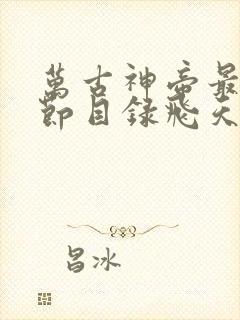 萬古神帝最
節目錄飛天
昌冰